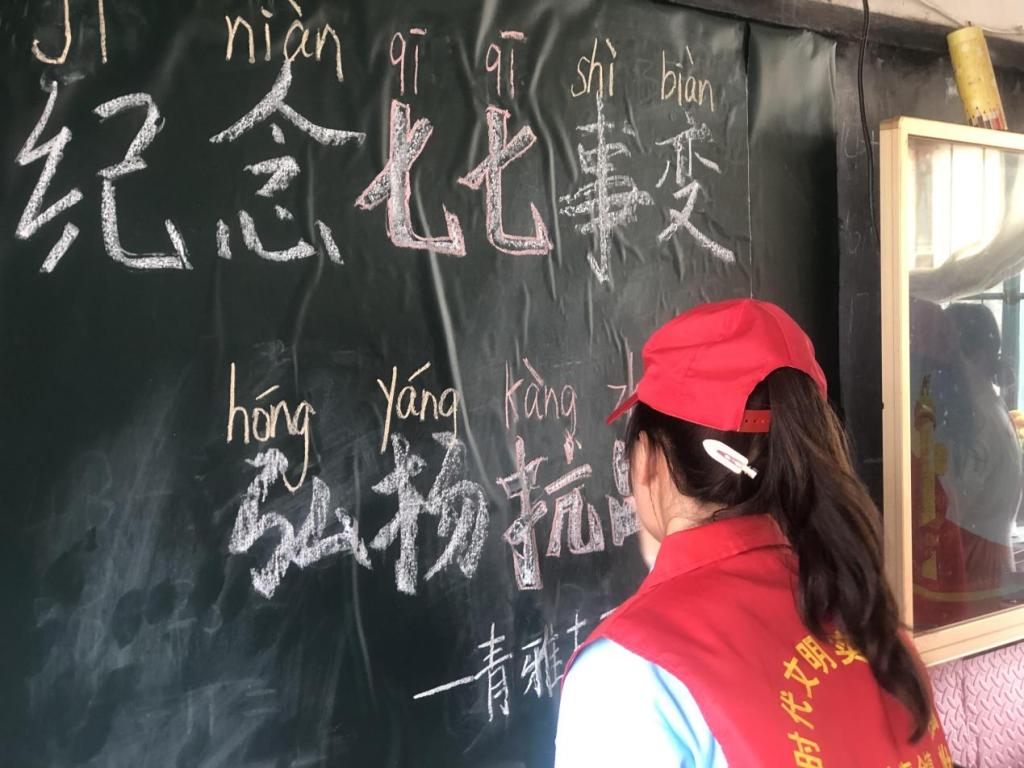 jì niàn qī qī shì biàn
纪念七七事变
hóng yáng kàng
弘扬抗
—青雅
时代文明实